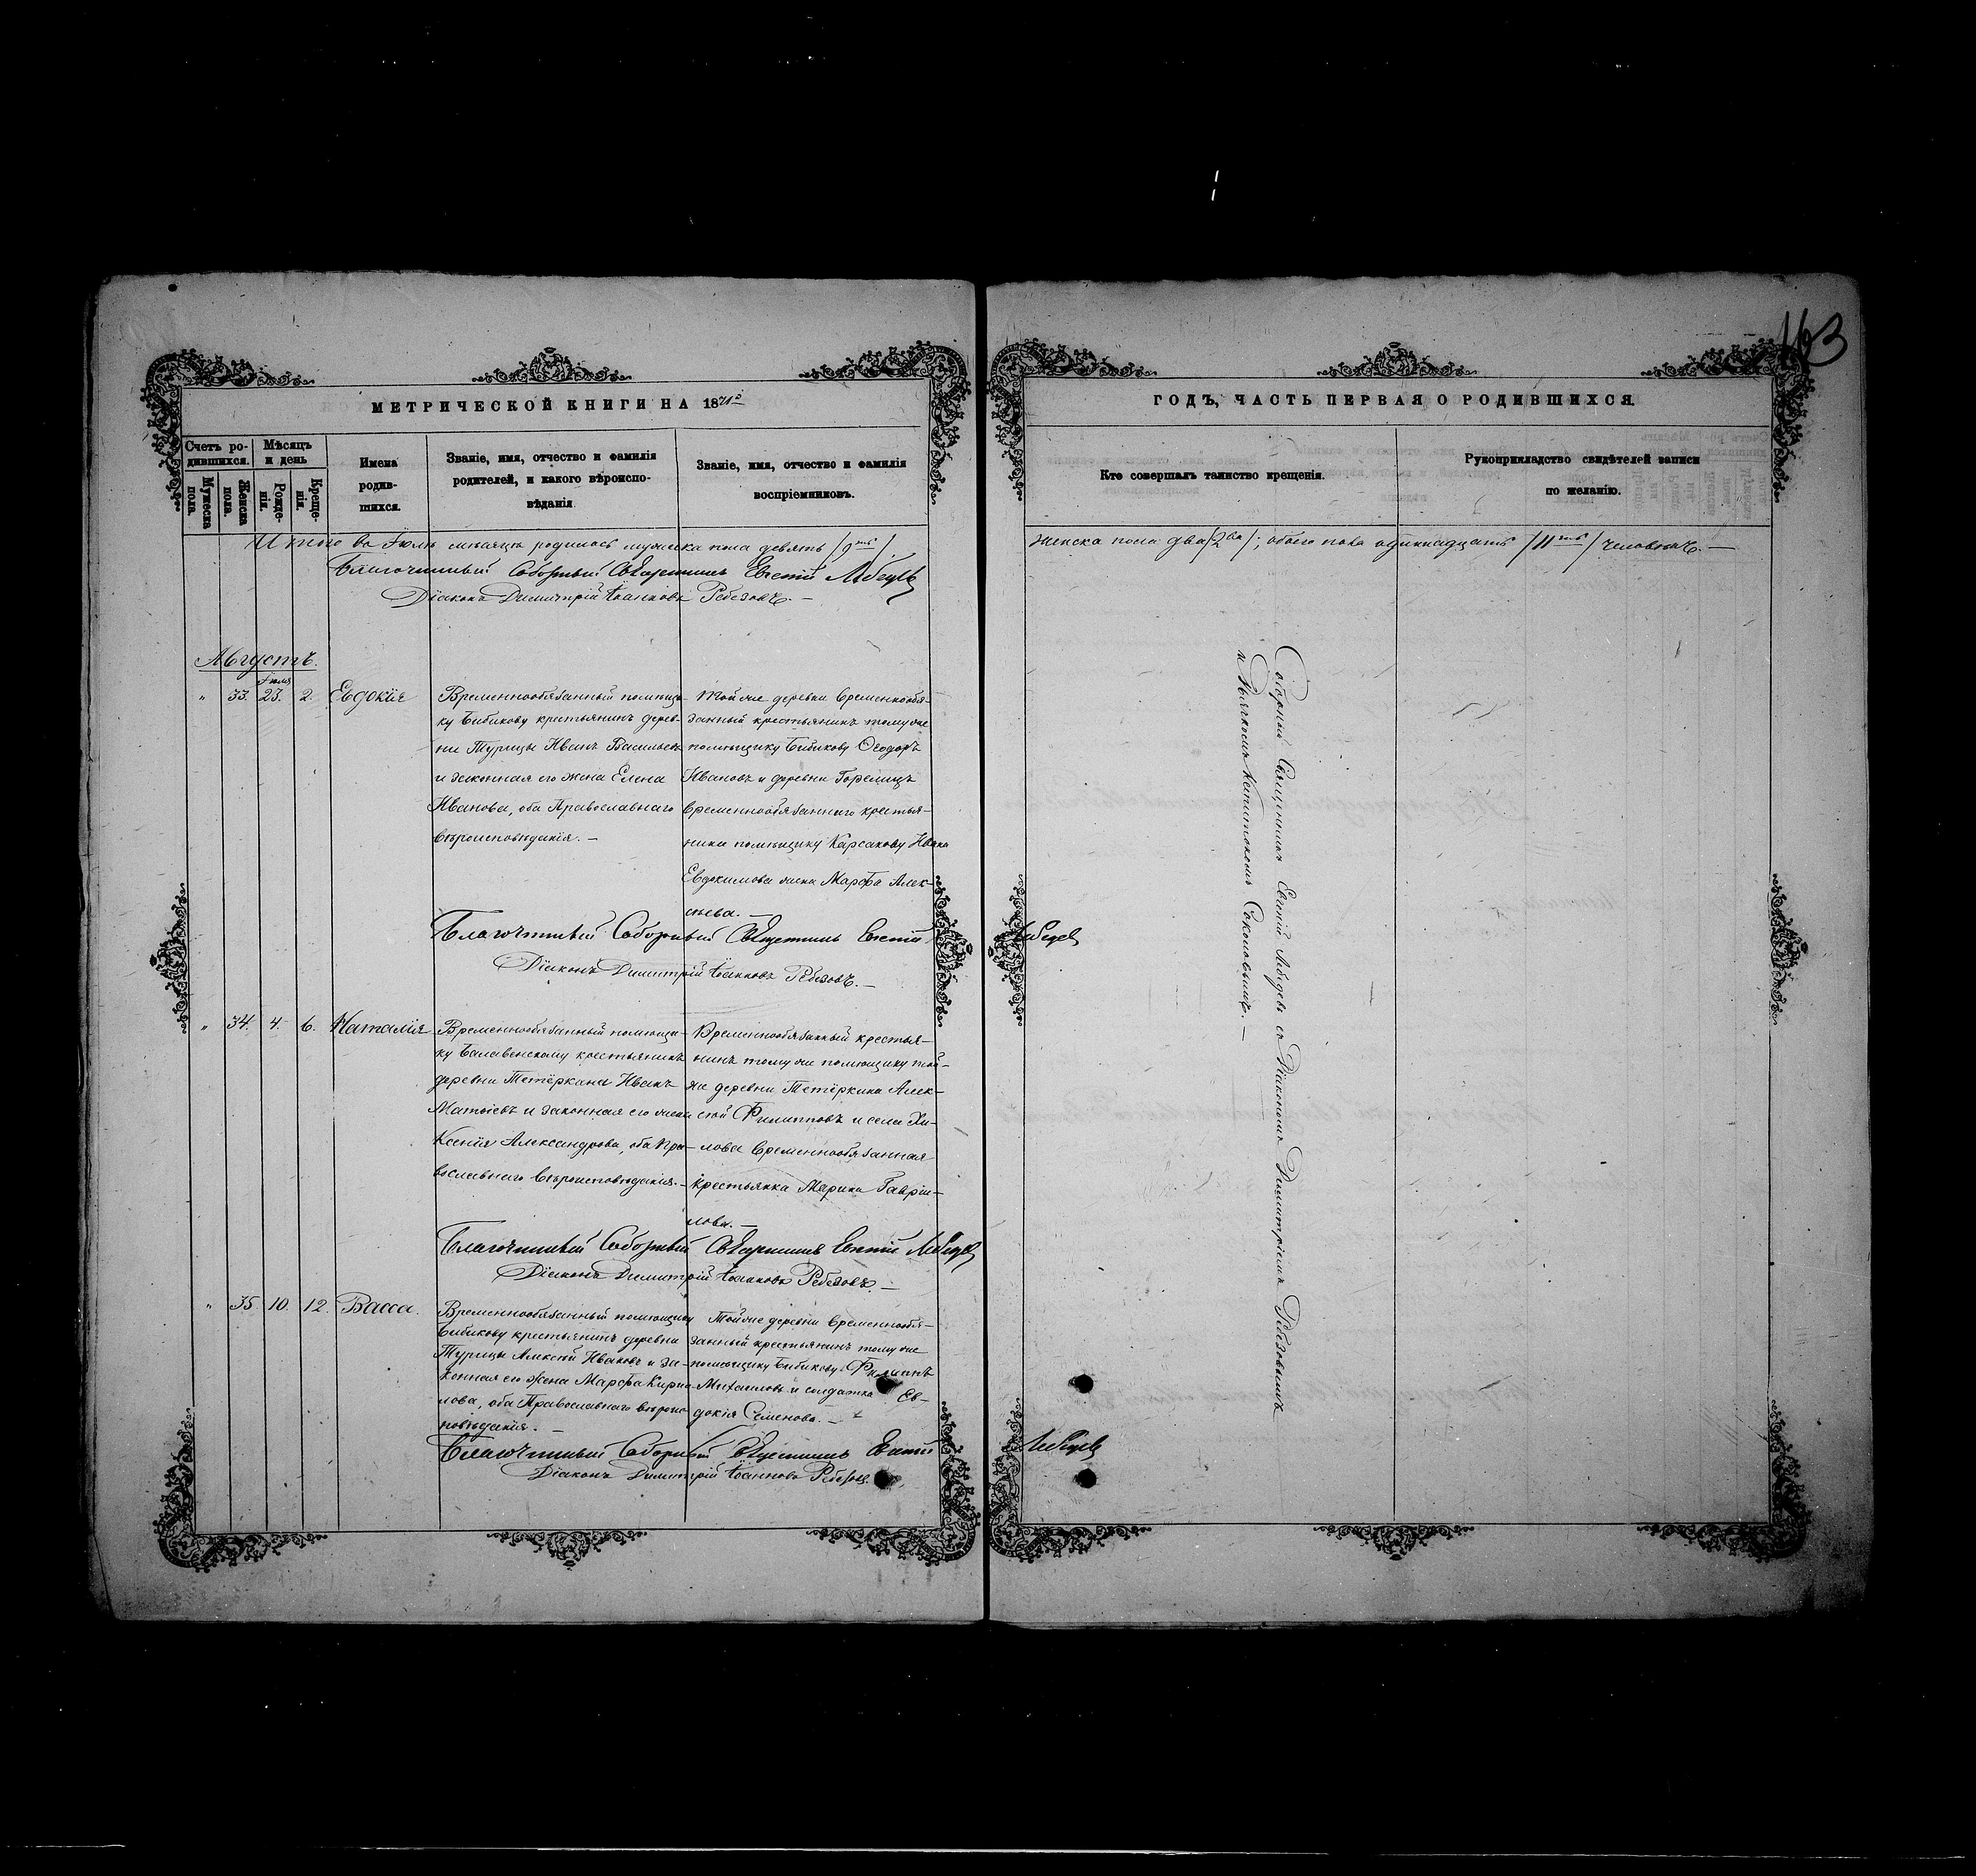 163
МЕТРИЧЕСКОЙ КНИГИ НА 1871й
ГОДЪ, ЧАСТЬ ПЕРВАЯ О РОДИВШИХСЯ.
Счетъ ро-
дившихся.
Мѣсяцъ
и день
Мужеска
пола.
Женска
пола.
Рожде-
нія.
Креще-
нія.
Имена
родив-
шихся.
Званіе, имя, отчество и фамилія
родителей, и какого вѣроиспо-
вѣданія
Званіе, имя, отчество и фамилія
воспріемниковъ.
Кто совершалъ таинство крещенія.
Рукоприкладство свидѣтелей записи
по желанію.
Итого въ Іюлѣ мѣсяцѣ родилось мужеска пола девять /9ть/
женска пола два /2ва/; обоего пола одиннадцать /11ть/ человѣкъ. —
Благочинный Соборный Священникъ Евгеній Лебедевъ
Діаконъ Димитрій Іоанновъ Ребезовъ. —
Августъ.
Іюля
" 33. 23. 2. Евдокія
Временнообязанный помѣщи-
ку Бибикову крестьянинъ дерев-
ни Турицы Иванъ Васильевъ
и законная его жена Елена
Иванова, оба Православнаго
вѣроисповѣданія. —
Той же деревни временнообя-
занный крестьянинъ тому же
помѣщику Бибикову Ѳеодоръ
Ивановъ и деревни Горелицъ
временнообязаннаго крестья-
нина помѣщику Карсакову Ивана
Евдокимова жена Марѳа Алек-
сѣева. —
Благочинный Соборный Священникъ Евгеній Лебедевъ
Діаконъ Димитрій Іоанновъ Ребезовъ. —
" 34. 4. 6. Наталія
Временнообязанный помѣщи-
ку Балавенскому крестьянинъ
деревни Тетёркина Иванъ
Матѳіевъ и законная его жена
Ксенія Александрова, оба Пра-
вославнаго вѣроисповѣданія. —
Временнообязанный крестья-
нинъ тому же помѣщику той-
же деревни Тетёркина Алек-
сѣй Филипповъ и села Хи-
лова временнообязанная
крестьянка Марина Гаврiи-
лова. —
Благочинный Соборный Священникъ Евгеній Лебедевъ
Діаконъ Димитрій Іоанновъ Ребезовъ. —
" 35. 10. 12. Васса.
Временнообязанный помѣщику
Бибикову крестьянинъ деревни
Турицы Алексѣй Ивановъ и за-
конная его жена Марѳа Кирил-
лова, оба Православнаго вѣроис-
повѣданія. —
Той же деревни временнообя-
занный крестьянинъ тому же
помѣщику Бибикову Филиппъ
Михаиловъ и солдатка Ев-
докія Семенова. —
Благочинный Соборный Священникъ Евгеній Лебедевъ
Діаконъ Димитрій Іоанновъ Ребезовъ.
Соборный Священникъ Евгеній Лебедевъ съ Діакономъ Димитріемъ Ребезовымъ
и Дьячкомъ Капитономъ Соколовымъ. —